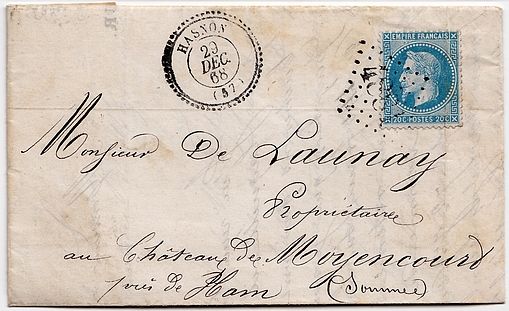 HASNON
29
DEC.
68
(57)
EMPIRE FRANÇAIS
20C POSTES 20C
Monsieur De Launay
Propriétaire
au Château de Moyencourt
près de Ham (Somme)